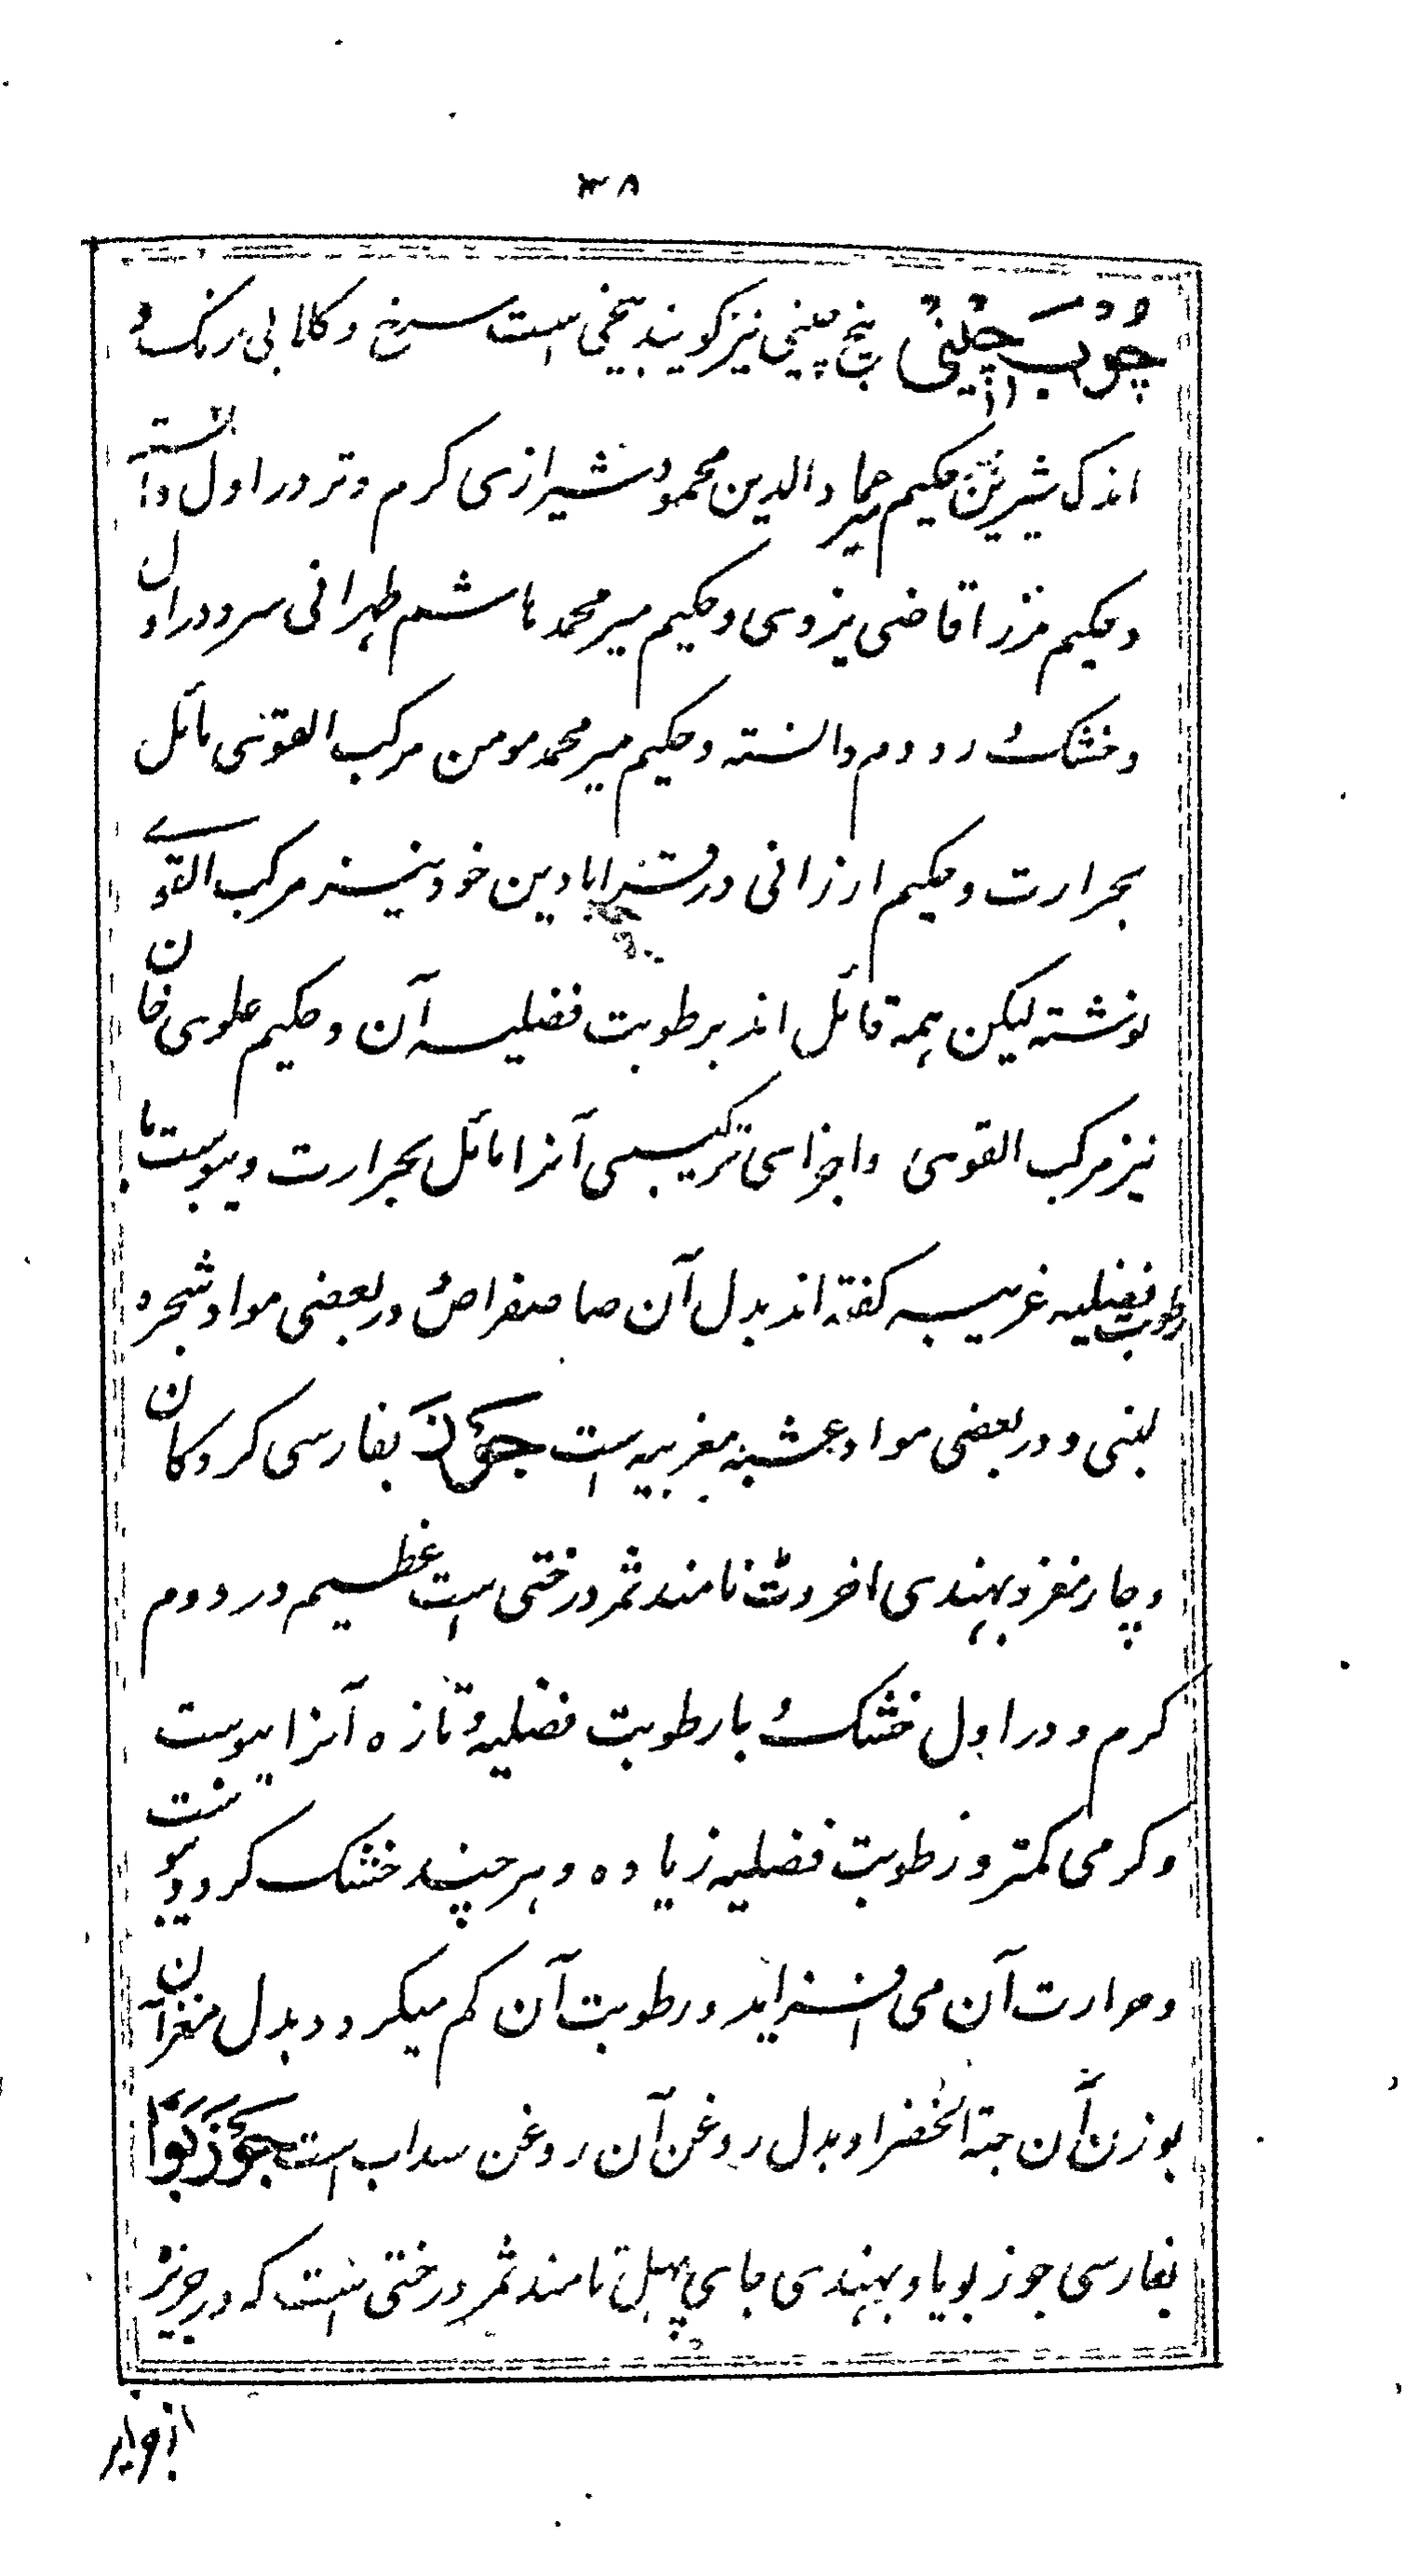 ۳۸
چُوْبْ چِیْنِیْ بیخ چینی نیز کویند بیخی است سرخ و کلابی رنک و
اندک شیرین حکیم میر عماد الدین محمود شیرازی کرم و تر در اول دانسته
و حکیم مرزا قاضی یزدی و حکیم میر محمد هاشم طهرانی سرد در اول
و خشک در دوم دانسته و حکیم میر محمد مومن مرکب القوی مائل
بحرارت و حکیم ارزانی در قرابادین خود نیز مرکب القوے
نوشته لیکن همه قائل اند برطوبت فضلیه آن و حکیم علوی خان
نیز مرکب القوی و اجزای ترکیبی آنرا مائل بحرارت و یبوست با
رطوبت فضلیه غریبه کفته اند بدل آن در بعضی مواد شجره
لبنی و در بعضی مواد عشبه مغربیه است جَوْزْ بفارسی کردکان
و چار مغز و بهندی اخروٹ نامند ثمر درختی است عظیم در دوم
کرم و در اول خشک با رطوبت فضلیه و تازه آنرا یبوست
و کرمی کمتر و رطوبت فضلیه زیاده و هر چند خشک کردد یبوست
و حرارت آن می افزاید و رطوبت آن کم میکردد و بدل مغز آن
بوزن آن حبة الخضرا و بدل روغن آن روغن سداب است جَوْزْبَوَّا
بفارسی جوز بویا و بهندی جای پهل نامند ثمر درختی است که در جزیرٔ